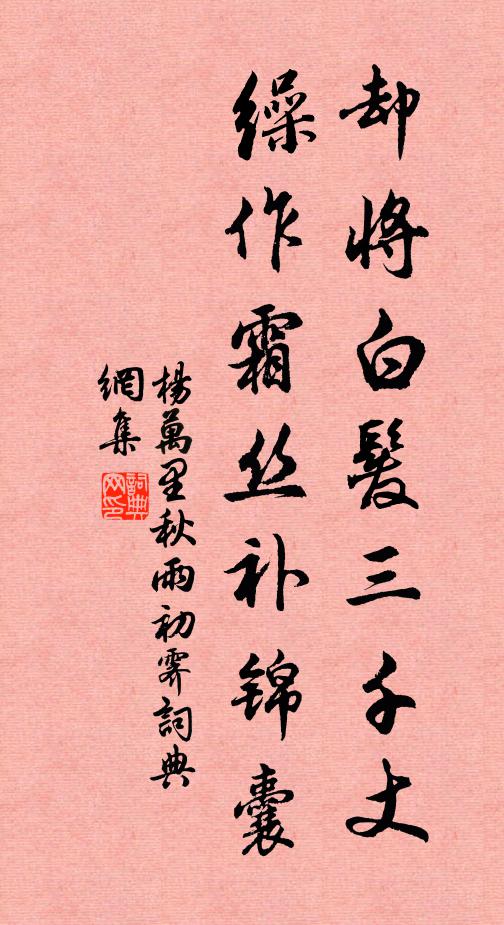 却将白髮三千丈
缲作霜丝补锦囊
楊萬里秋雨初霽詞典
網集
詞典
网印